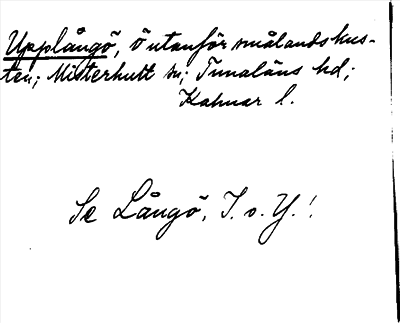 Upplångö, ö utanför smålandskus-
ten; Misterhult sn; Tunaläns hd;
Kalmar l.
Se Långö, I. o. Y.!